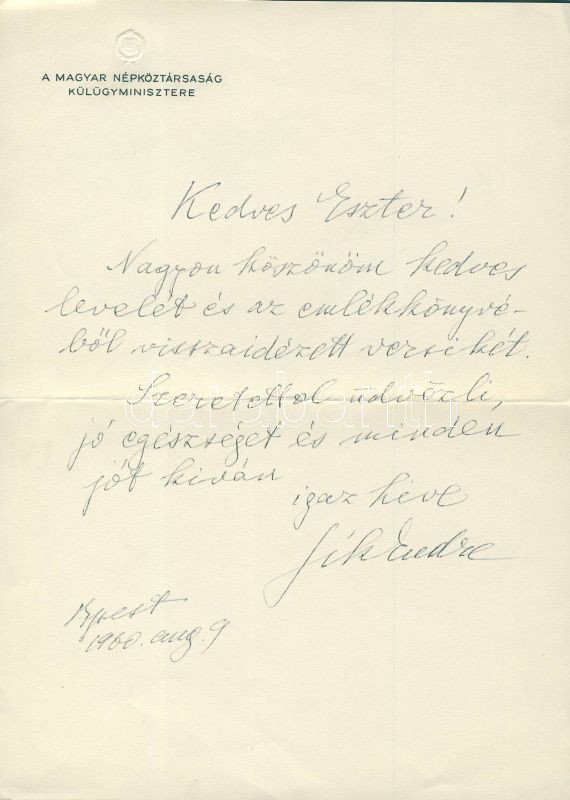 A MAGYAR NÉPKÖZTÁRSASÁG
KÜLÜGYMINISZTERE
Kedves Eszter!
Nagyon köszönöm kedves
levelét és az emlékkönyvé-
ből visszaidézett versikét.
Szeretettel üdvözli,
jó egészséget és minden
jót kíván
igaz híve
Sík Endre
Bpest
1960. aug. 9
darabanth